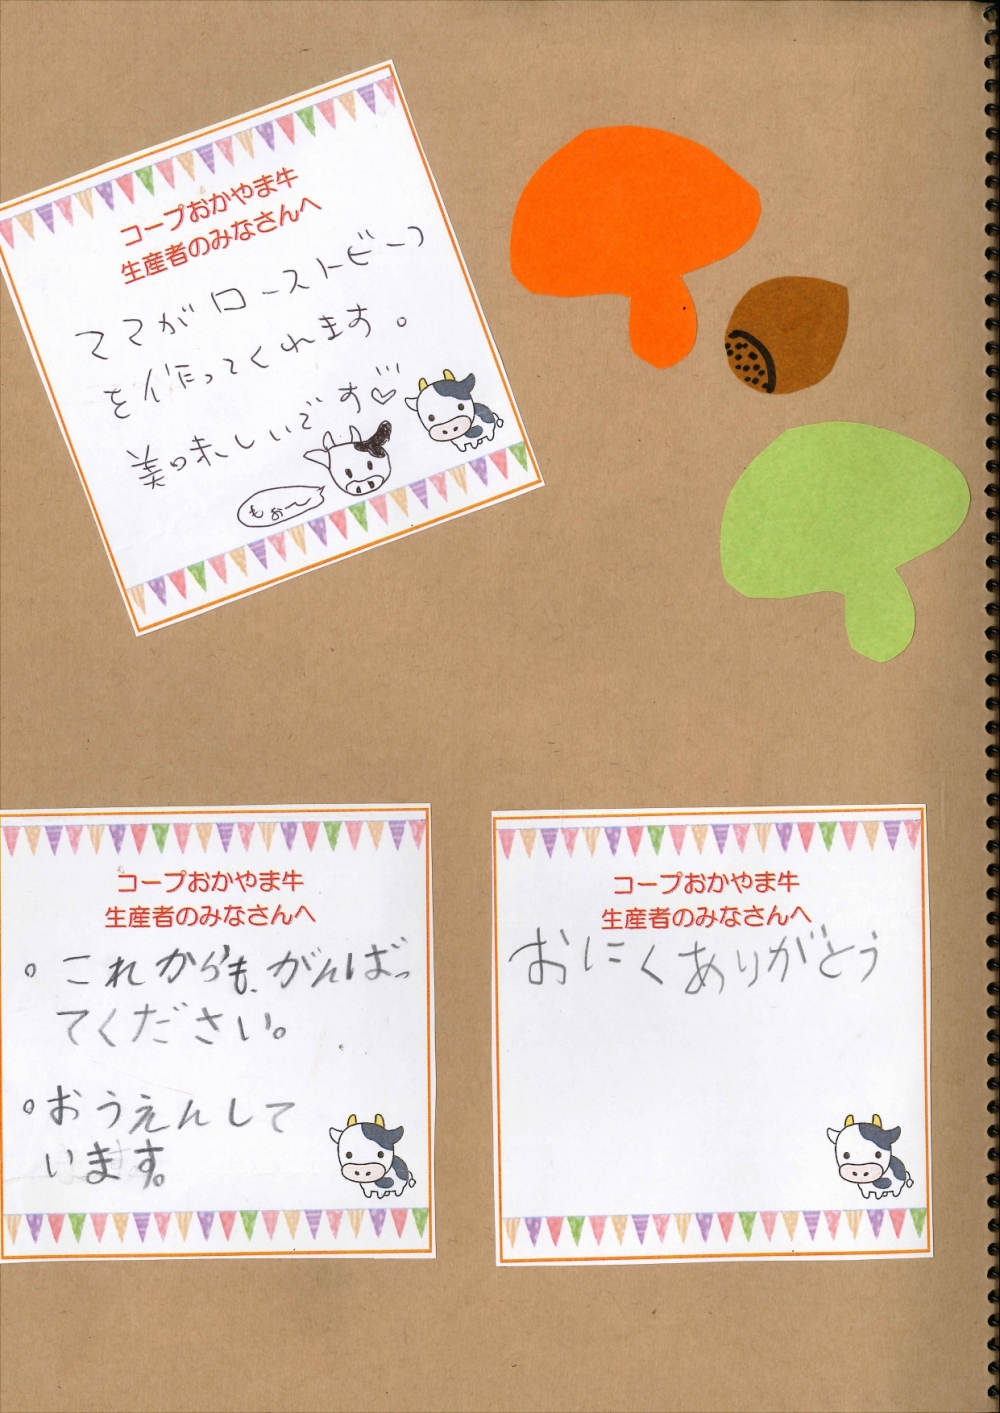 コープおかやま牛
生産者のみなさんへ
ママがローストビーフ
を作ってくれます。
美味しいです♡
もぉ〜
コープおかやま牛
生産者のみなさんへ
。これからも、がんばっ
てください。
。おうえんして
います。
コープおかやま牛
生産者のみなさんへ
おにくありがとう